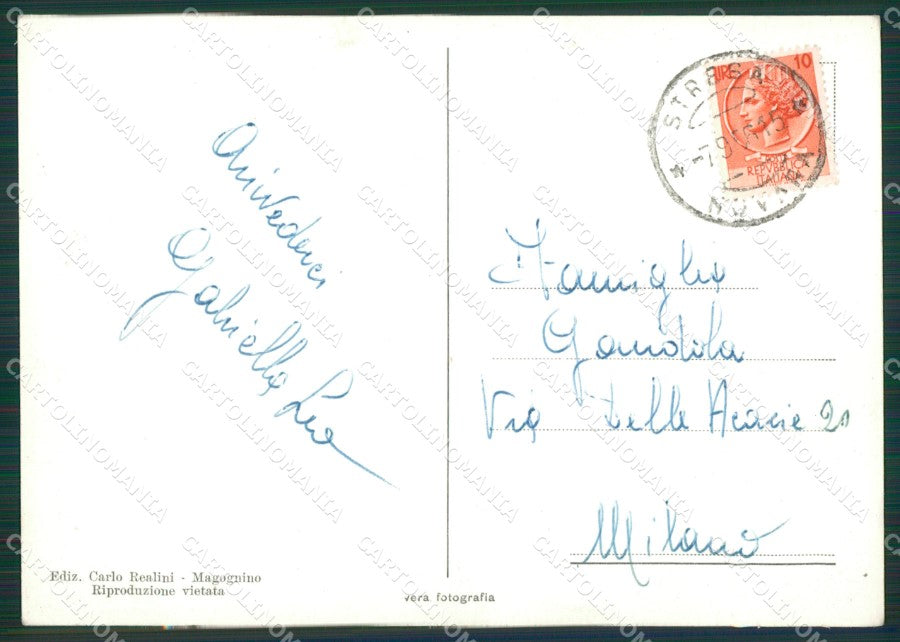 Arrivederci
Gabriella Leo
Ediz. Carlo Realini - Magognino
Riproduzione vietata
vera fotografia
LIRE 10
POSTE
REPVBBLICA
ITALIANA
STRESA
NOVARA
Famiglia
Gandola
Via Delle Acacie 21
Milano
CARTOLINOMANIA